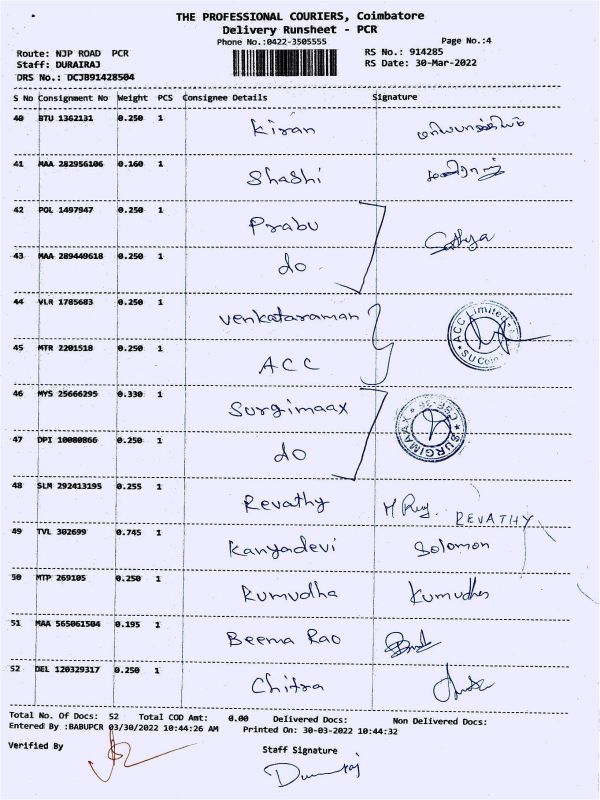 THE PROFESSIONAL COURIERS, Coimbatore
Delivery Runsheet - PCR
Phone No.:0422-3505555
Page No.:4
Route: NJP ROAD PCR
RS No.: 914285
Staff: DURAIRAJ
RS Date: 30-Mar-2022
DRS No.: DCJB91428504
S No Consignment No Weight PCS Consignee Details Signature
40 BTU 1362131 0.250 1 Kiran
41 MAA 282956106 0.160 1 Shashi
42 POL 1497947 0.250 1 Prabu
Sathya
43 MAA 289449618 0.250 1 do
44 VLR 1785683 0.250 1 Venkataraman
ACC Limited
45 MTR 2201518 0.250 1 ACC
46 MYS 25666295 0.330 1 Surgimaax
SURGIMAAX
47 DPI 10080866 0.250 1 do
48 SLM 292413195 0.255 1 Revathy
REVATHY
49 TVL 302699 0.745 1 Kanyadevi Solomon
50 MTP 269105 0.250 1 Kumudha Kumudha
51 MAA 565061504 0.195 1 Beema Rao
52 DEL 120329317 0.250 1 Chitra
Total No. Of Docs: 52 Total COD Amt: 0.00 Delivered Docs: Non Delivered Docs:
Entered By :BABUPCR 03/30/2022 10:44:26 AM Printed On: 30-03-2022 10:44:32
Verified By
Staff Signature
Durairaj